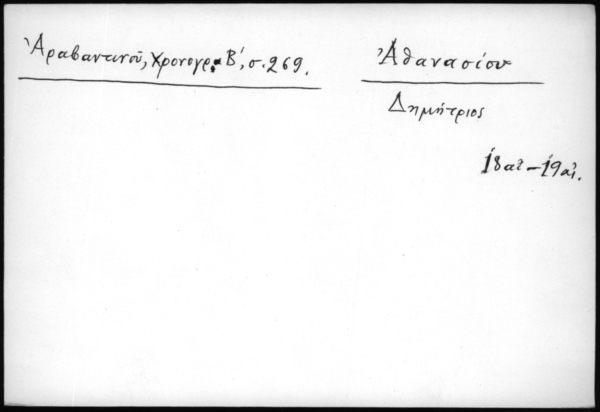 Ἀραβαντινοῦ, Χρονογρ. Β', σ. 269.
Ἀθανασίου
Δημήτριος
18αἰ - 19αἰ.